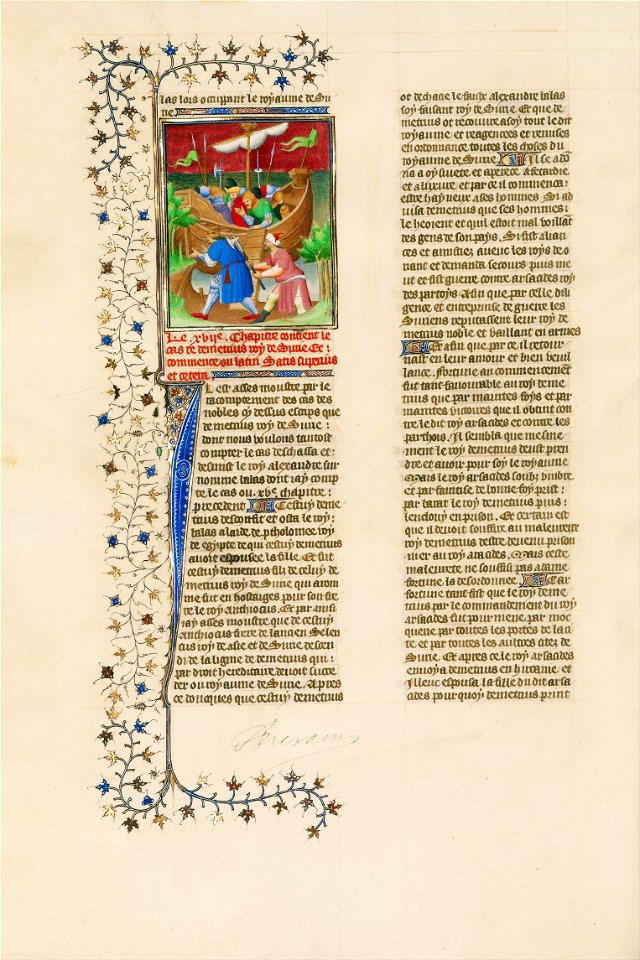 las lors occupant le royaume de Su
rie
Le .xvi͛e. Chapitre contient le
cas de demetrius roy de Surie Et
commence ou latin Satis superius
et cetera
Il est asses moustre par le
racomptement des cas des
nobles cy dessus escrips que
demetrius roy de Surie :
dont nous voulons tantost
compter le cas deschassa et
desmist le roy alexandre sur
nomme balas dont iay comp
te le cas ou .xve. chapitre :
precedent Cestuy deme
trius desconfit et osta le roy
balas a laide de ptholomee roy
de egypte de qui cestuy demetrius
auoit espousee la fille. Et fut
cestuy demetrius filz de celuy de
metrius roy de Surie qui a rom
me fut en hostaiges pour son fre
re le roy anthiocus. Et par ainsi
iay asses moustre que de cestuy
anthiocus frere de lancien Seleu
cus roy de asie et de Surie descen
di de la ligne de demetrius qui :
par droit hereditaire deuoit succe
der ou royaume de Surie. Apres
ce doncques que cestuy demetrius
ot dechacie le fause alexandre balas
soy faisant roy de Surie Et que de
metrius ot recouure a soy tout le dit
royaume et reagencees et remises
en ordonnance toutes les choses du
royaume de Surie Il se ado
na a oysiuete et a perece a feroite
et a luxure et par ce il commenca :
estre hayneux a ses hommes. Si ad
uisa demetrius que ses hommes :
le heoient et quil estoit mal voillat
des gens de son pays. Si fist alian
ces et amistiez auec les roys de o
riant et demanda secours puis me
ut et fist guerre contre arsacides roy
des partoys. Afin que par celle dili
gence et entreprise de guerre les
Suriens reputissent leur roy de
metrius noble et vaillant en armes
Et afin que par ce il retour
nast en leur amour et bien veuil
lance. fortune au commencement
fut tant fauourable au roy deme
trius que par maintes foys et par
maintes victoires que il obtint con
tre le dit roy arsacides et contre les
parthois. Il sembla que mesme
ment le roy demetrius deust pren
dre et auoir pour soy le royaume
Mais le roy arsacides soubz umbre
et par faintise de bonne foy prist :
par barat le roy demetrius puis :
lenuoy en prison. Et certain est
que il deuoit souffire au maleureux
roy demetrius destre deuenu prisonn
nier au roy arsacides. Mais ceste
maleurete ne souffist pas a dame
fortune la desordonnee. Car
fortune tant fist que le roy deme
trius par le commandement du roy
arsacides fut pour mene par moc
querie par toutes les portes de la ci
te et par toutes les aultres citez de
Surie. Et apres ce le roy arsacides
enuoya demetrius en hircanie et
illeuc espousa la fille du dit arsa
cides pour quoy demetrius print